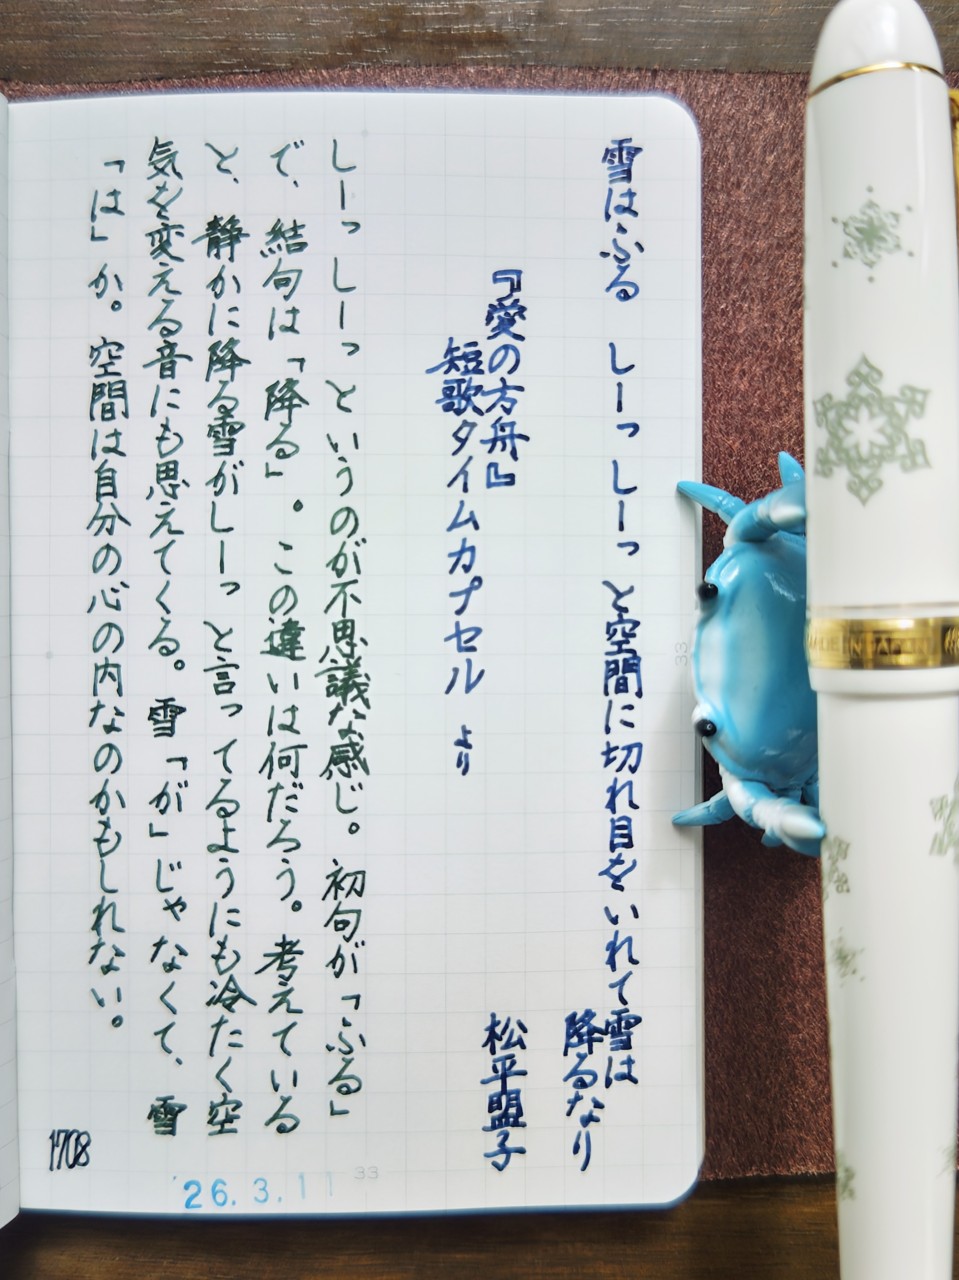 雪はふる　しーっしーっと空間に切れ目をいれて雪は
降るなり
松平盟子
『愛の方舟』
短歌タイムカプセル　より
しーっしーっというのが不思議な感じ。初句が「ふる」
で、結句は「降る」。この違いは何だろう。考えている
と、静かに降る雪がしーっと言ってるようにも冷たく空
気を変える音にも思えてくる。雪「が」じゃなくて、雪
「は」か。空間は自分の心の内なのかもしれない。
1708
26.3.11
33
33
MADE IN JAPAN